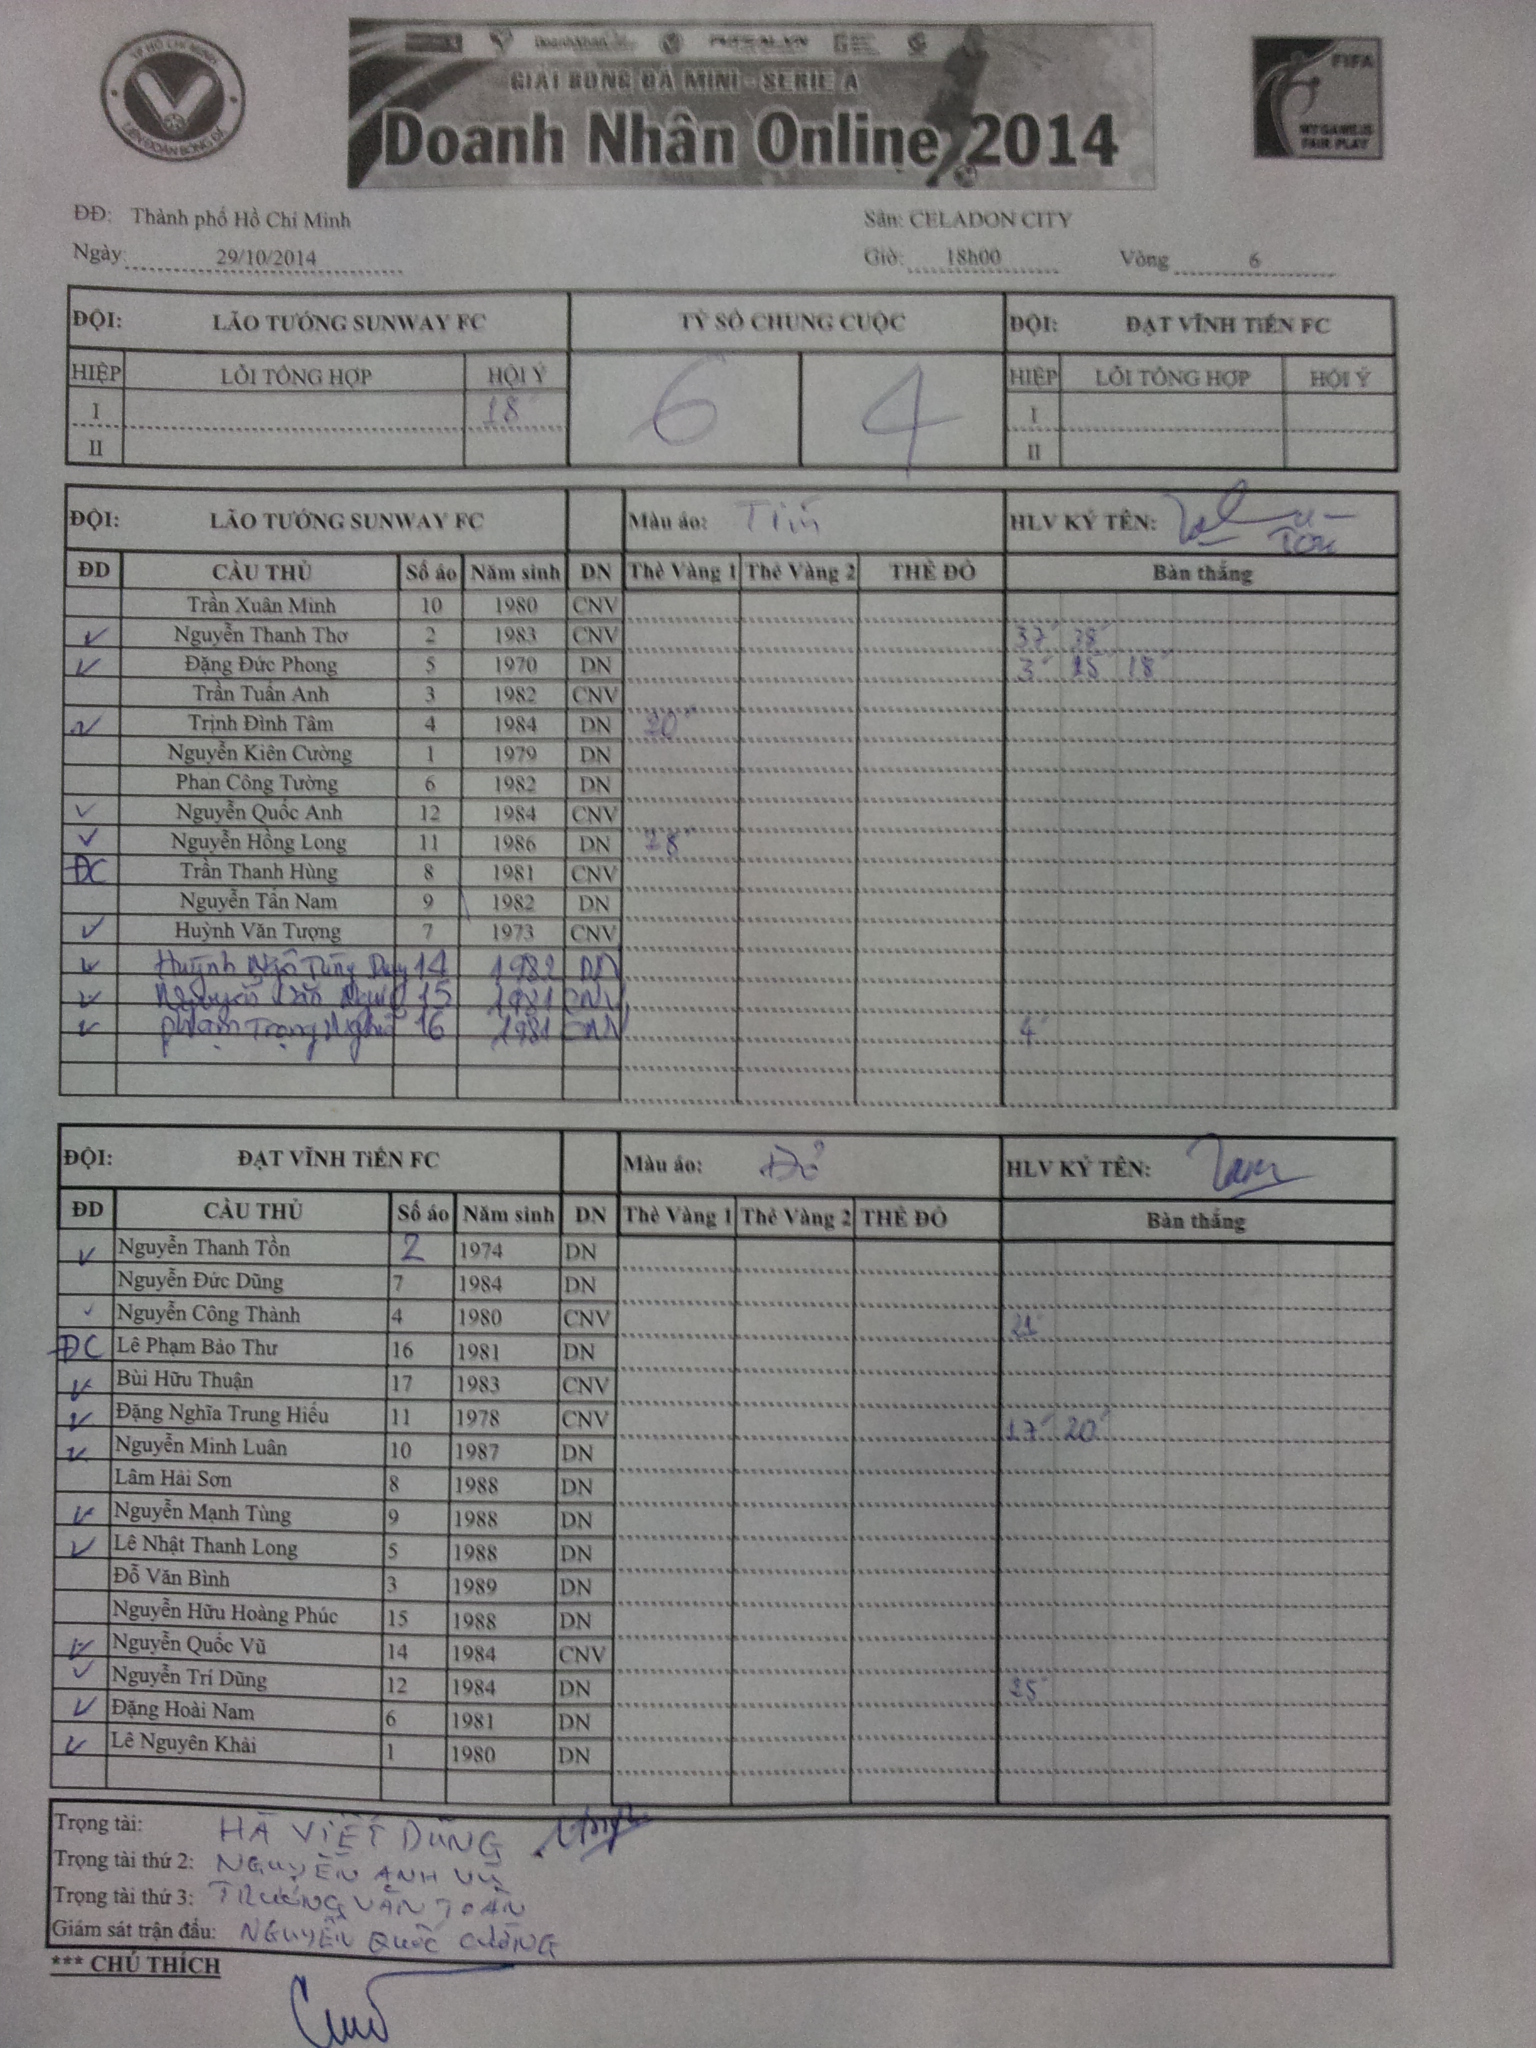 TP HỒ CHÍ MINH
LIÊN ĐOÀN BÓNG ĐÁ
GIẢI BÓNG ĐÁ MINI - SERIE A
Doanh Nhân Online 2014
FIFA
MY GAME IS
FAIR PLAY
ĐĐ: Thành phố Hồ Chí Minh Sân: CELADON CITY
Ngày: 29/10/2014 Giờ: 18h00 Vòng 6
ĐỘI: LÃO TƯỚNG SUNWAY FC TỶ SỐ CHUNG CUỘC ĐỘI: ĐẠT VĨNH TiẾN FC
HIỆP LỖI TỔNG HỢP HỘI Ý 6 4 HIỆP LỖI TỔNG HỢP HỘI Ý
I 18' I
II II
ĐỘI: LÃO TƯỚNG SUNWAY FC Màu áo: Tím HLV KÝ TÊN:
ĐD CẦU THỦ Số áo Năm sinh DN Thẻ Vàng 1 Thẻ Vàng 2 THẺ ĐỎ Bàn thắng
Trần Xuân Minh 10 1980 CNV
Nguyễn Thanh Thơ 2 1983 CNV 37' 38'
Đặng Đức Phong 5 1970 DN 3' 15' 18'
Trần Tuấn Anh 3 1982 CNV
Trịnh Đình Tâm 4 1984 DN 20'
Nguyễn Kiên Cường 1 1979 DN
Phan Công Tường 6 1982 DN
Nguyễn Quốc Anh 12 1984 CNV
Nguyễn Hồng Long 11 1986 DN 28'
ĐC Trần Thanh Hùng 8 1981 CNV
Nguyễn Tấn Nam 9 1982 DN
Huỳnh Văn Tượng 7 1973 CNV
Huỳnh Ngô Tùng Duy 14 1982 DN
Nguyễn Văn 15 1981 CNV
Phạm Trọng Nghĩa 16 1981 CNV 4'
ĐỘI: ĐẠT VĨNH TiẾN FC Màu áo: Đỏ HLV KÝ TÊN:
ĐD CẦU THỦ Số áo Năm sinh DN Thẻ Vàng 1 Thẻ Vàng 2 THẺ ĐỎ Bàn thắng
Nguyễn Thanh Tồn 2 1974 DN
Nguyễn Đức Dũng 7 1984 DN
Nguyễn Công Thành 4 1980 CNV 21'
ĐC Lê Phạm Bảo Thư 16 1981 DN
Bùi Hữu Thuận 17 1983 CNV
Đặng Nghĩa Trung Hiếu 11 1978 CNV 17' 20'
Nguyễn Minh Luân 10 1987 DN
Lâm Hải Sơn 8 1988 DN
Nguyễn Mạnh Tùng 9 1988 DN
Lê Nhật Thanh Long 5 1988 DN
Đỗ Văn Bình 3 1989 DN
Nguyễn Hữu Hoàng Phúc 15 1988 DN
Nguyễn Quốc Vũ 14 1984 CNV
Nguyễn Trí Dũng 12 1984 DN 25'
Đặng Hoài Nam 6 1981 DN
Lê Nguyên Khải 1 1980 DN
Trọng tài: HÀ VIẾT DŨNG
Trọng tài thứ 2: NGUYỄN ANH VŨ
Trọng tài thứ 3: TRƯƠNG VĂN TOÀN
Giám sát trận đấu: NGUYỄN QUỐC CƯỜNG
*** CHÚ THÍCH